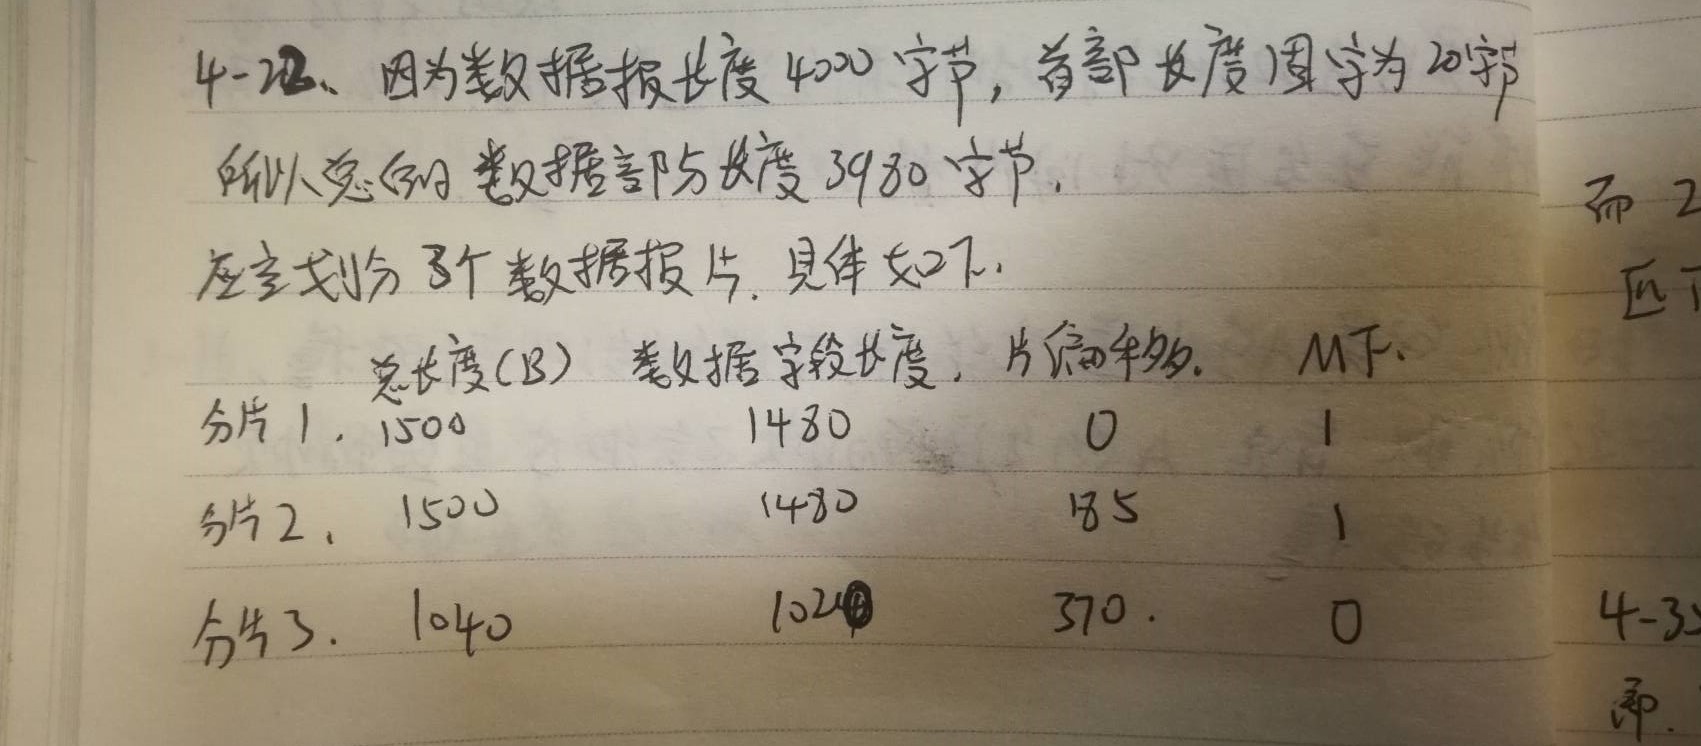 4-22、因为数据报长度4000字节，首部长度固定为20字节
所以总的数据部分长度3980字节.
应当划分3个数据报片. 具体如下.
总长度(B) 数据字段长度. 片偏移. MF.
分片1. 1500 1480 0 1
分片2. 1500 1480 185 1
分片3. 1040 1020 370. 0
而 2
4-3
即.